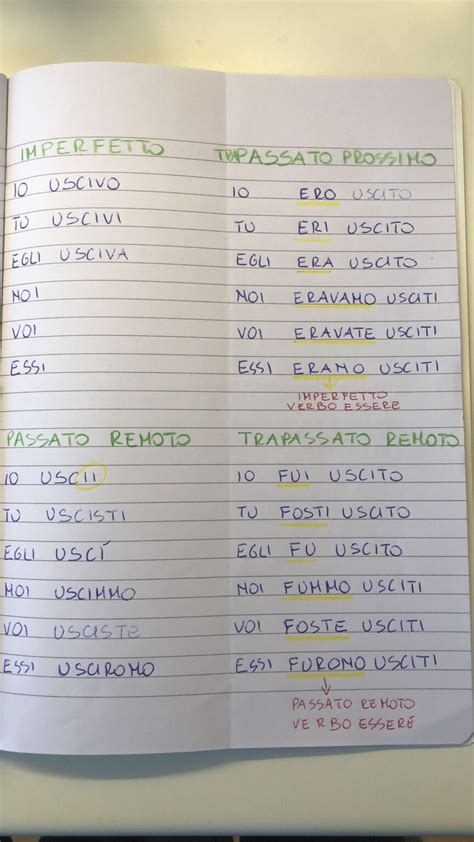 IMPERFETTO
IO USCIVO
TU USCIVI
EGLI USCIVA
NOI
VOI
ESSI
TRAPASSATO PROSSIMO
IO ERO USCITO
TU ERI USCITO
EGLI ERA USCITO
NOI ERAVAMO USCITI
VOI ERAVATE USCITI
ESSI ERANO USCITI
IMPERFETTO
VERBO ESSERE
PASSATO REMOTO
IO USCII
TU USCISTI
EGLI USCÍ
NOI USCIMMO
VOI USCISTE
ESSI USCIRONO
TRAPASSATO REMOTO
IO FUI USCITO
TU FOSTI USCITO
EGLI FU USCITO
NOI FUMMO USCITI
VOI FOSTE USCITI
ESSI FURONO USCITI
PASSATO REMOTO
VERBO ESSERE